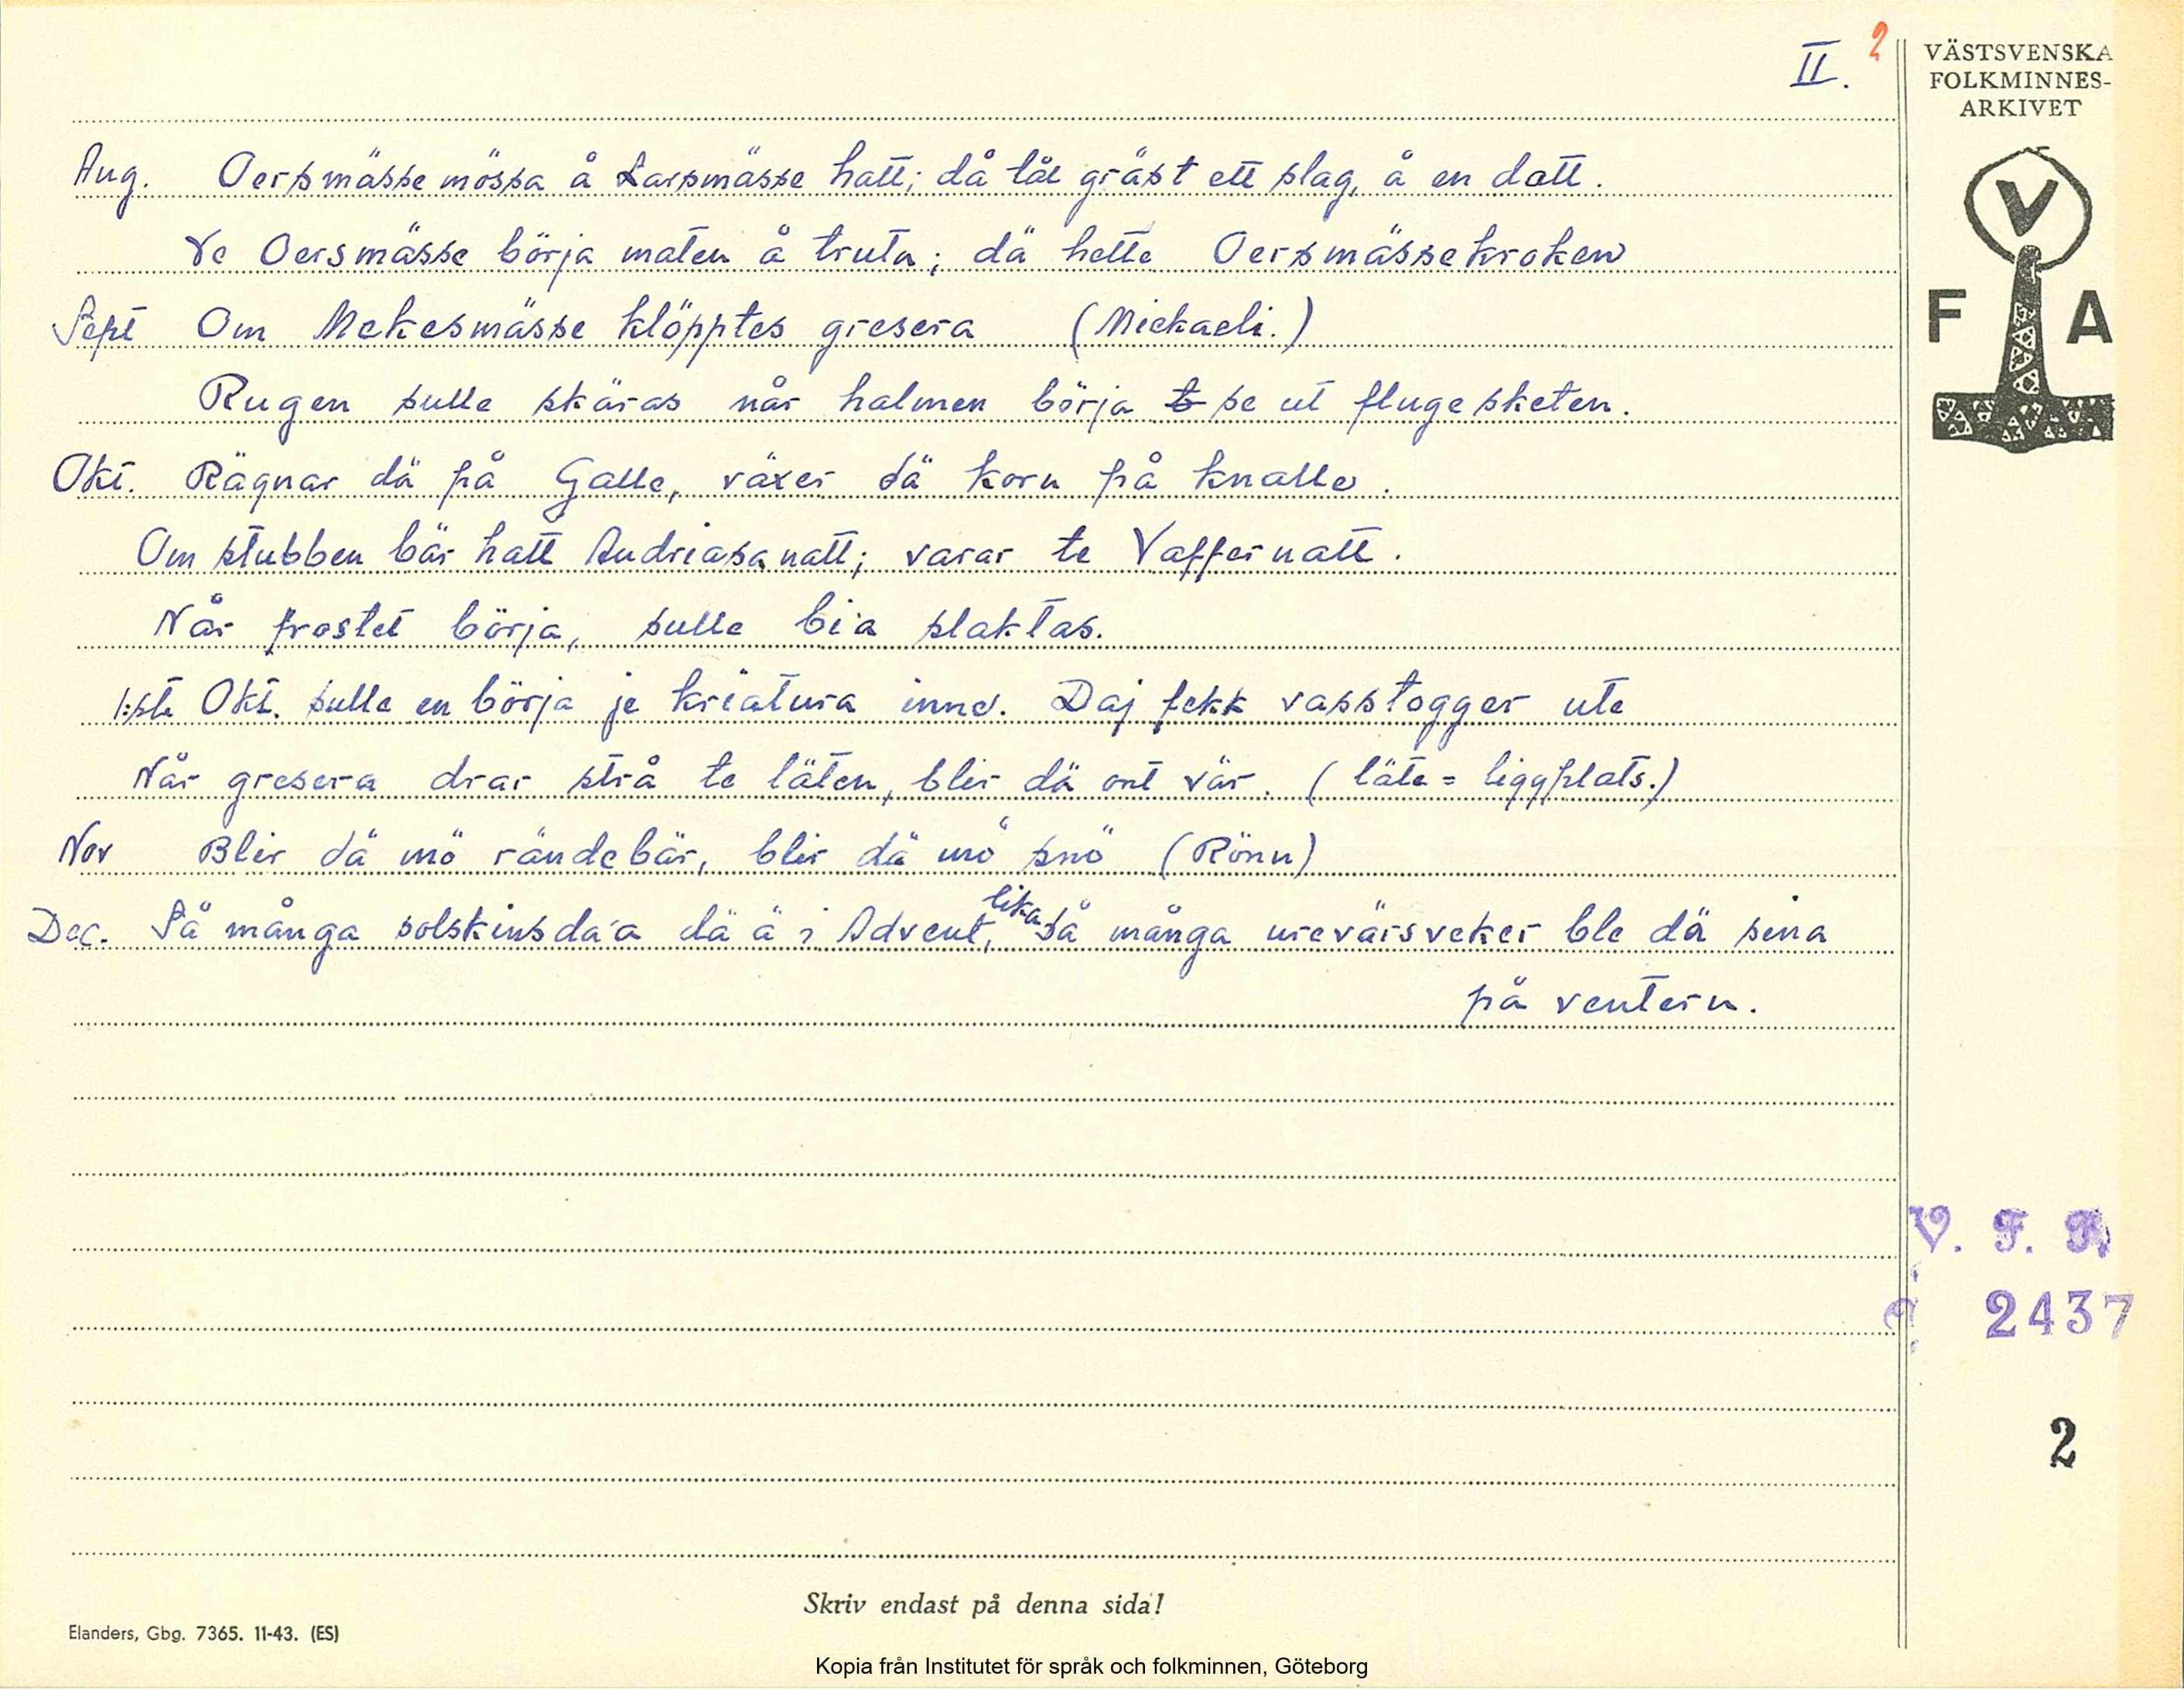 II. 2
VÄSTSVENSKA
FOLKMINNES-
ARKIVET
V
F A
Aug. Oersmässe mössa å Larsmässe hatt; då låt gräst ett slag, å en datt.
Ve Oersmässe börja maten å truta; dä hette Oersmässekroken
Sept Om Mekesmässe klöpptes gresera (Mickaeli.)
Rugen sulle skäras når halmen börja se ut flugesketen.
Okt. Rägnar dä på Galle, växer dä korn på knalle.
Om stubben bär hatt Andriasanatt; varar te Vaffernatt.
Når frostet börja, sulle bia slaktas.
1:sta Okt. sulle en börja je kriatura inne. Daj fekk vasstogger ute
Når gresera drar strå te läten, blir dä ont vär. (läte = liggplats.)
Nov Blir dä mö rändebär, blir dä mö snö (Rönn)
Dec. Så många solskinsda'a dä ä i Advent, lika så många urevärsveker ble dä sina
på ventern.
V. F. F.
2437
2
Skriv endast på denna sida!
Elanders, Gbg. 7365. 11-43. (ES)
Kopia från Institutet för språk och folkminnen, Göteborg